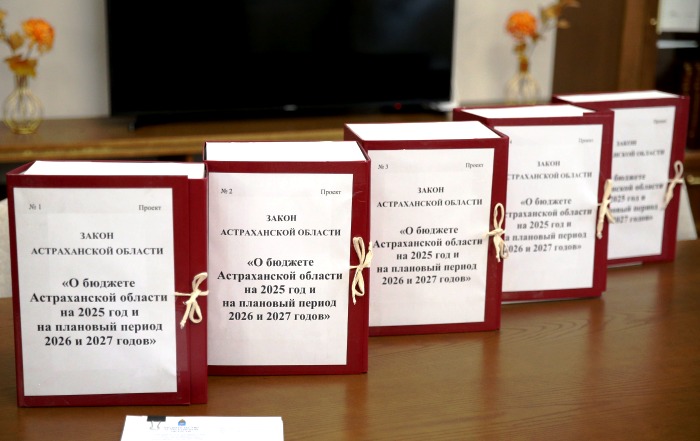 № 1 Проект
ЗАКОН
АСТРАХАНСКОЙ ОБЛАСТИ
«О бюджете
Астраханской области
на 2025 год и
на плановый период
2026 и 2027 годов»
№ 2 Проект
ЗАКОН
АСТРАХАНСКОЙ ОБЛАСТИ
«О бюджете
Астраханской области
на 2025 год и
на плановый период
2026 и 2027 годов»
№ 3 Проект
ЗАКОН
АСТРАХАНСКОЙ ОБЛАСТИ
«О бюджете
Астраханской области
на 2025 год и
на плановый период
2026 и 2027 годов»
Проект
ЗАКОН
АСТРАХАНСКОЙ ОБЛАСТИ
«О бюджете
Астраханской области
на 2025 год и
на плановый период
2026 и 2027 годов»
Проект
ЗАКОН
ОБЛАСТИ
«О бюджете
области
2025 год и
период
2027 годов»